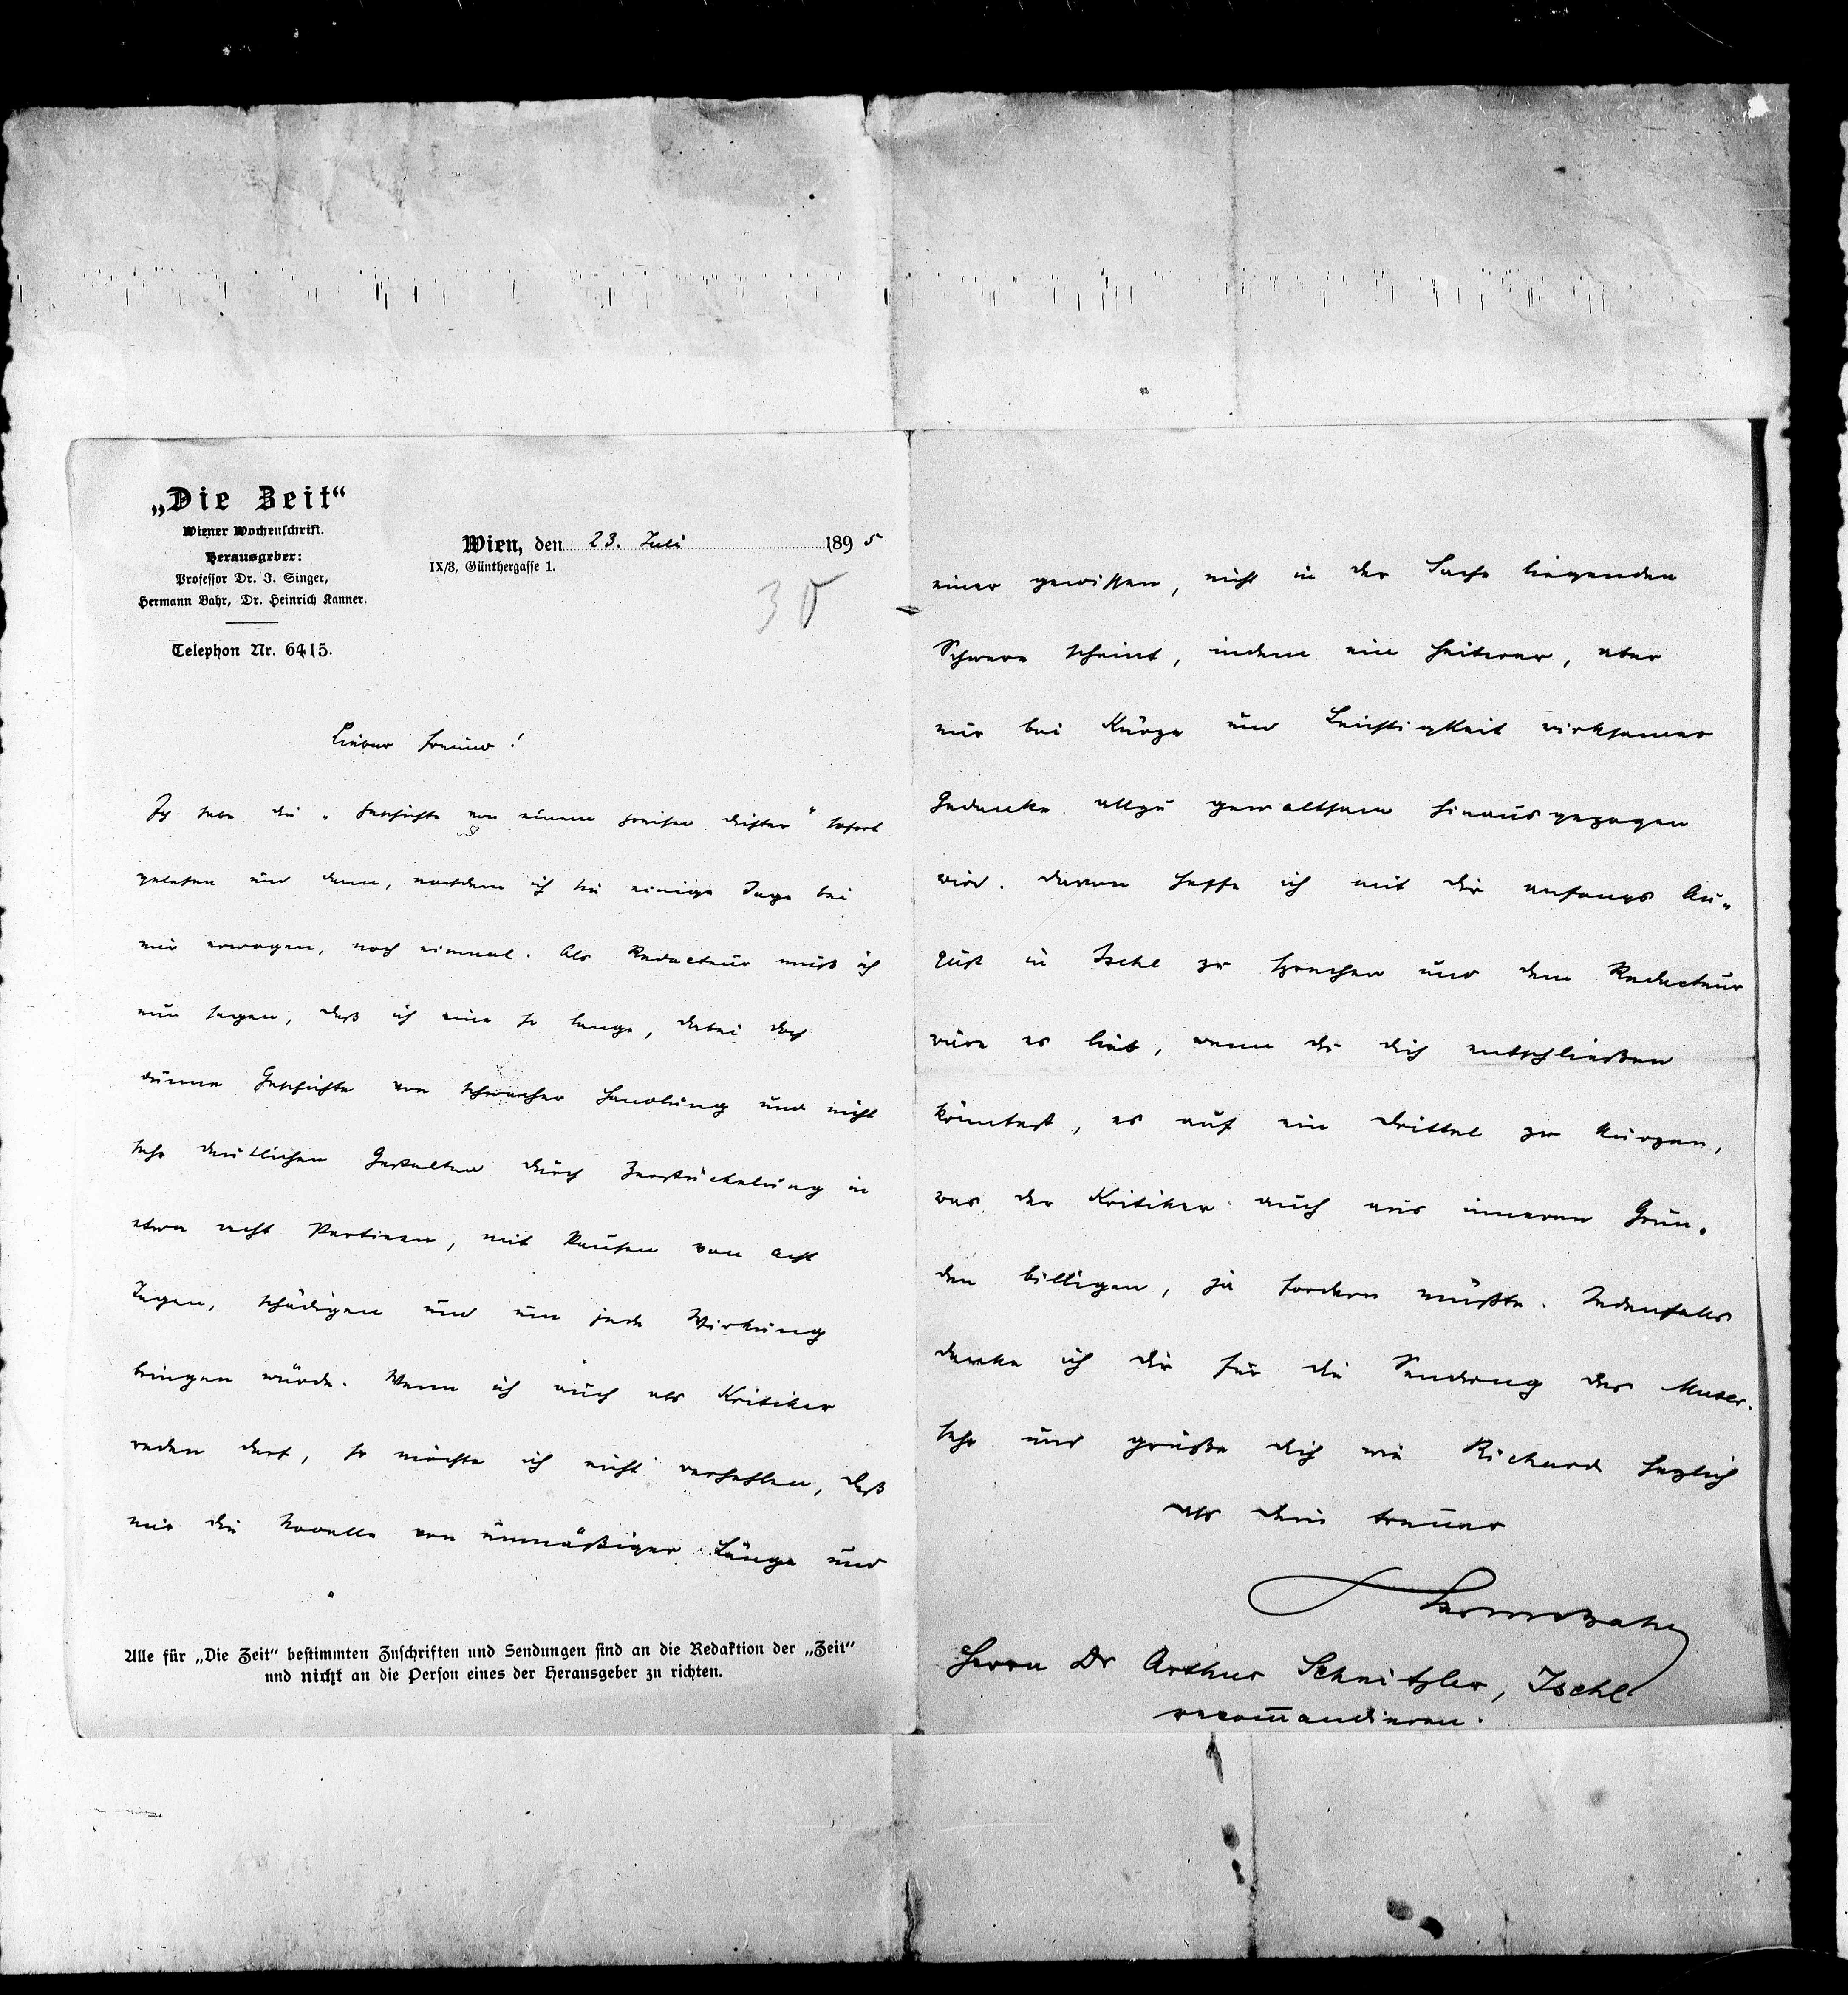 „Die Zeit“
Wiener Wochenschrift.
Herausgeber:
Professor Dr. I. Singer,
Hermann Bahr, Dr. Heinrich Kanner.
Telephon Nr. 6415.
Wien, den 23. Juli 1895
IX/3, Günthergasse 1.
35
Lieber Freund!
Ich habe die „Geschichte von einem greisen Dichter“ sofort
gelesen und dann, nachdem ich sie einige Tage bei
mir erwogen, noch einmal. Als Redacteur muß ich
nun sagen, daß ich eine so lange, dabei doch
dünne Geschichte von schwacher Handlung und nicht
sehr deutlichen Gestalten durch Zerstückelung in
etwa acht Partieen, mit Pausen von acht
Tagen, schädigen und um jede Wirkung
bringen würde. Wenn ich auch als Kritiker
reden darf, so möchte ich nicht verhehlen, daß
mir die Novelle von unmäßiger Länge und
Alle für „Die Zeit“ bestimmten Zuschriften und Sendungen sind an die Redaktion der „Zeit“
und nicht an die Person eines der Herausgeber zu richten.
einer gewissen, nicht in der Sache liegenden
Schwere scheint, indem ein heiterer, aber
nur bei Kürze und Leichtigkeit wirksamer
Gedanke allzu gewaltsam hinausgezogen
wird. Davon hoffe ich mit Dir anfangs Au-
gust in Ischl zu sprechen und dem Redacteur
wäre es lieb, wenn du dich entschließen
könntest, es auf ein Drittel zu kürzen,
was der Kritiker auch aus inneren Grün-
den billigen, ja fordern müßte. Jedenfalls
danke ich Dir für die Sendung des Manus.
sehr und grüße dich wie Richard herzlich
als dein treuer
HermBahr
Herrn Dr Arthur Schnitzler, Ischl
recom̅andieren.